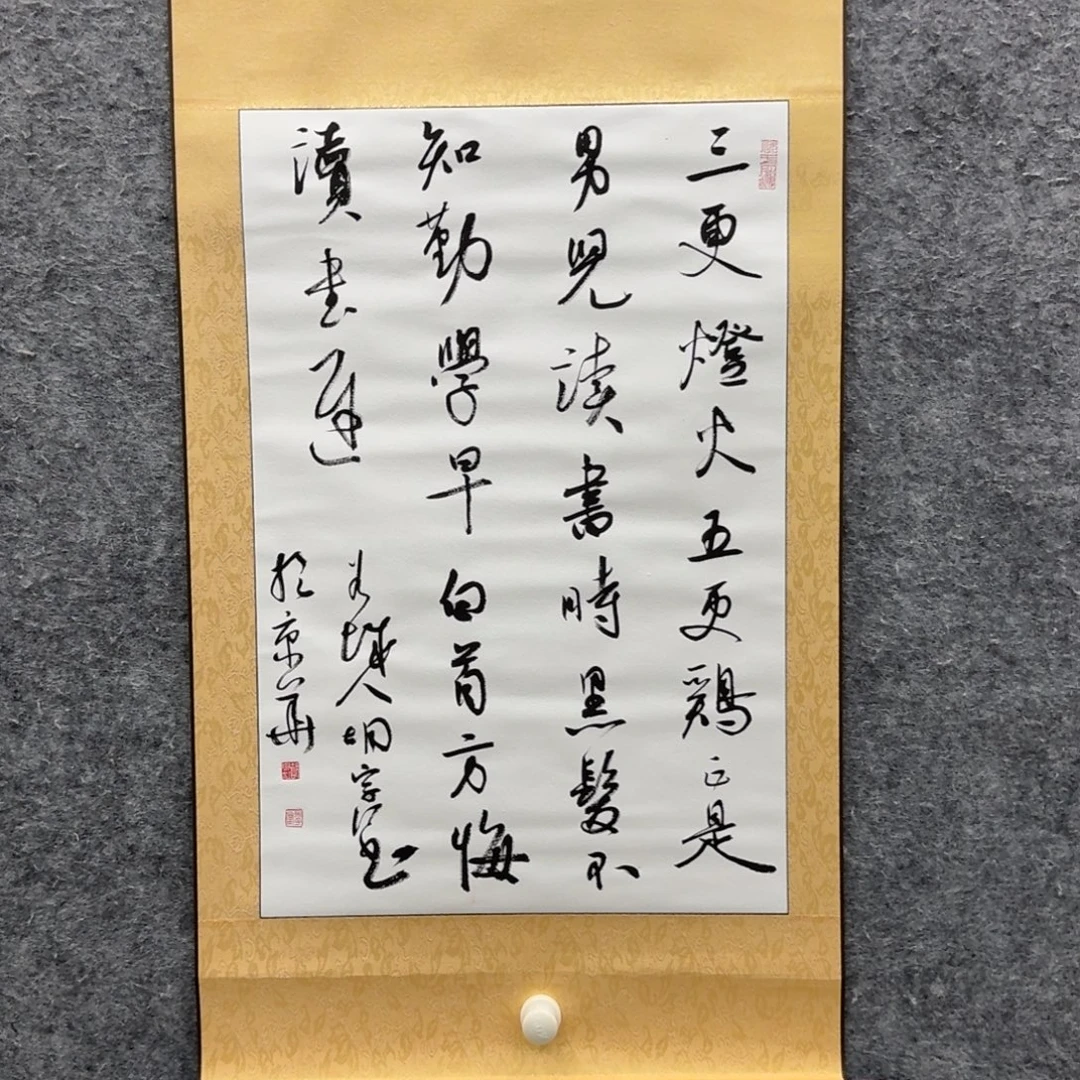 三更燈火五更鷄正是
男児讀書時黒髮不
知勤學早白首方悔
讀书遲
城人明宇书
於京華